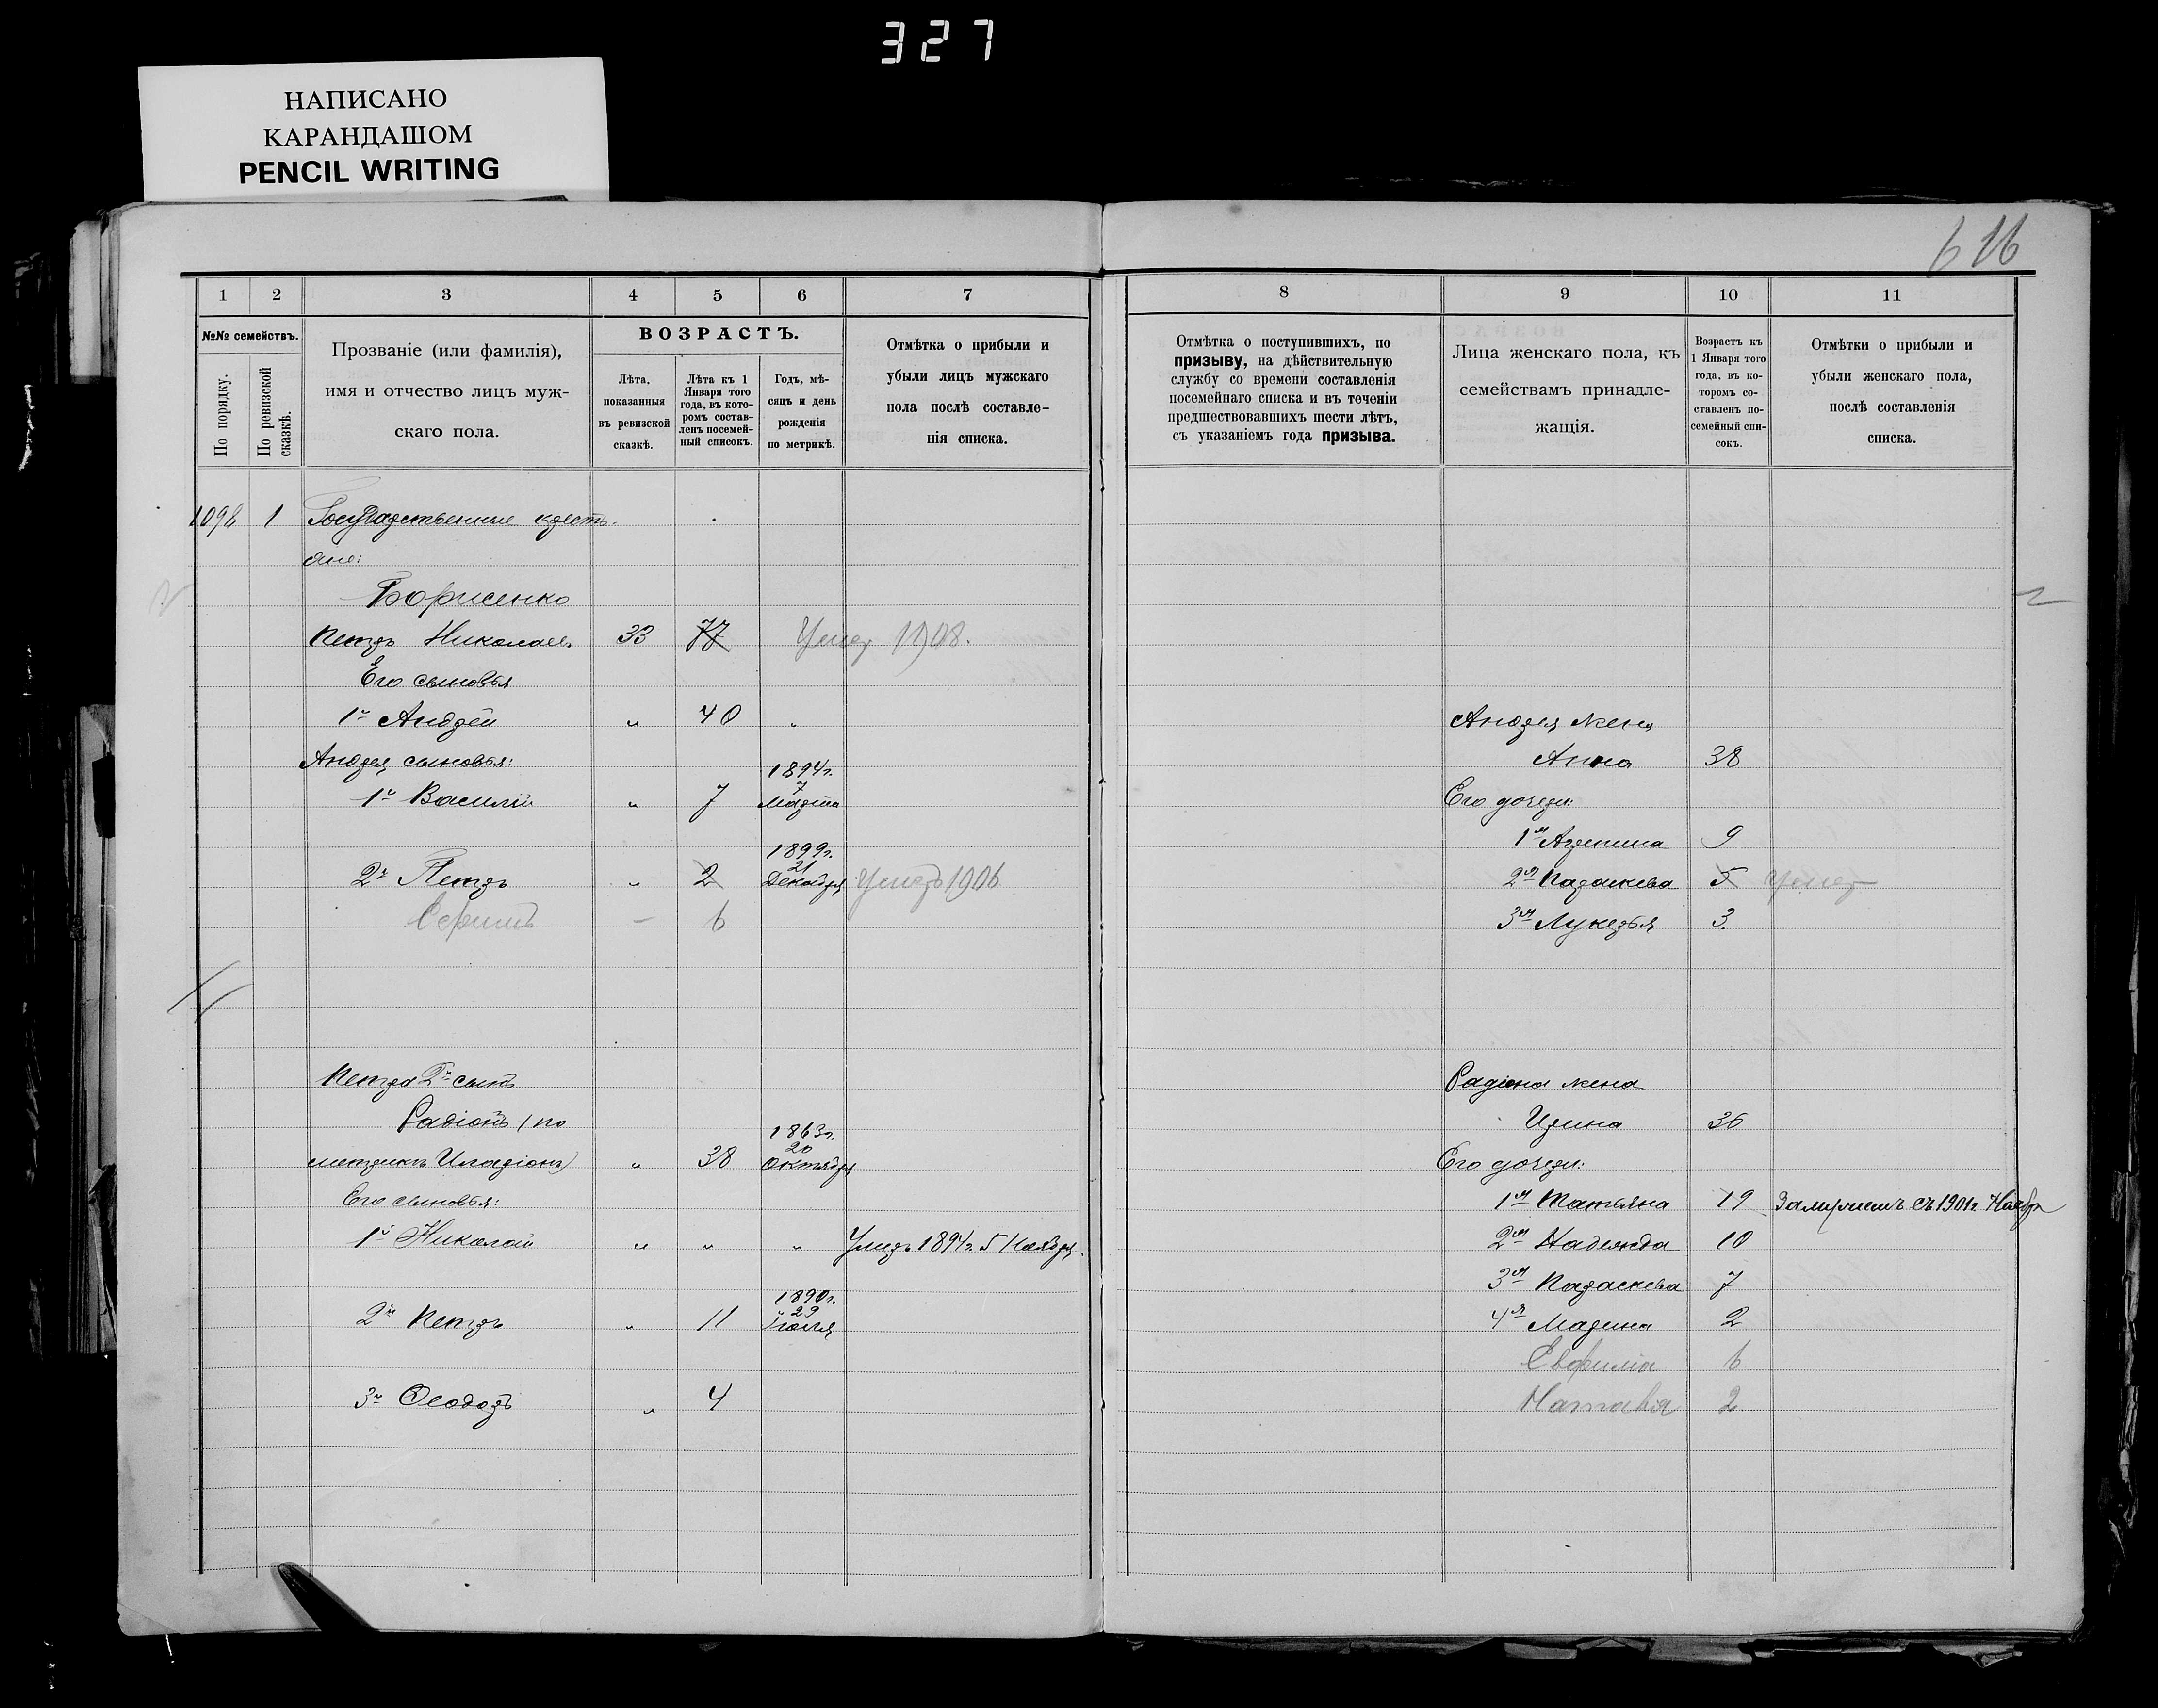 327
НАПИСАНО
КАРАНДАШОМ
PENCIL WRITING
616
1 2 3 4 5 6 7 8 9 10 11
№№ семействъ.
По порядку.
По ревизской сказкѣ.
Прозваніе (или фамилія),
имя и отчество лицъ муж-
скаго пола.
ВОЗРАСТЪ.
Лѣта,
показанныя
въ ревизской
сказкѣ.
Лѣта къ 1
Января того
года, въ кото-
ромъ состав-
ленъ посемей-
ный списокъ.
Годъ, мѣ-
сяцъ и день
рожденія
по метрикѣ.
Отмѣтка о прибыли и
убыли лицъ мужскаго
пола послѣ составле-
нія списка.
Отмѣтка о поступившихъ, по
призыву, на дѣйствительную
службу со времени составленія
посемейнаго списка и въ теченіи
предшествовавшихъ шести лѣтъ,
съ указаніемъ года призыва.
Лица женскаго пола, къ
семействамъ принадле-
жащія.
Возрастъ къ
1 Января того
года, въ ко-
торомъ со-
ставленъ по-
семейный спи-
сокъ.
Отмѣтки о прибыли и
убыли женскаго пола,
послѣ составленія
списка.
1098 1 Государственные кресть-
яне:
Борисенко
Петръ Николаев. 33 77 Умер 1908.
Его сыновья
1й Андрей " 40 "
Андрея жена
Андрея сыновья:
Анна 38
1й Василій " 7 1894г. 7 Марта
Его дочери:
1я Агрипина 9
2й Петръ " 2 1899г. 21 Декабря Умеръ 1906
2я Параскева 5 Умер
Ефимъ – 6
3я Лукерья 3.
Петра 2й сынъ
Радіона жена
Радіонъ (по
Ирина 36
метрикѣ Иродіонъ) " 38 1863г. 20 Октября
Его дочери:
Его сыновья:
1я Татьяна 19 Замужемъ съ 1901г. Ноября
1й Николай " " " Умеръ 1894г. 5 Ноября.
2я Надежда 10
3я Параскева 7
2й Петръ " 11 1890г. 29 Іюля
4я Марина 2
Евфимія 6
3й Феодоръ " 4
Наталья 2